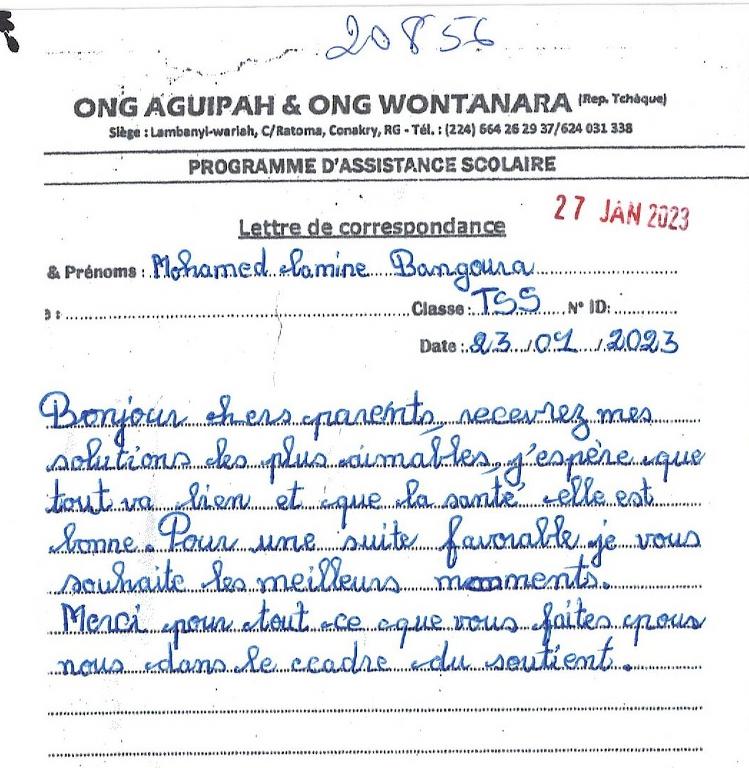 20856
ONG AGUIPAH & ONG WONTANARA (Rep. Tchèque)
Siège : Lambanyi-wariah, C/Ratoma, Conakry, RG - Tél. : (224) 664 26 29 37/624 031 338
PROGRAMME D'ASSISTANCE SCOLAIRE
27 JAN 2023
Lettre de correspondance
& Prénoms : Mohamed Lamine Bangoura
Classe : TSS N° ID:
Date : 23/01/2023
Bonjour chers parents, recevrez mes
solutions les plus aimables, j'espère que
tout va bien et que la santé elle est
bonne. Pour une suite favorable je vous
souhaite les meilleurs moments.
Merci pour tout ce que vous faites pour
nous dans le ceadre du soutient.